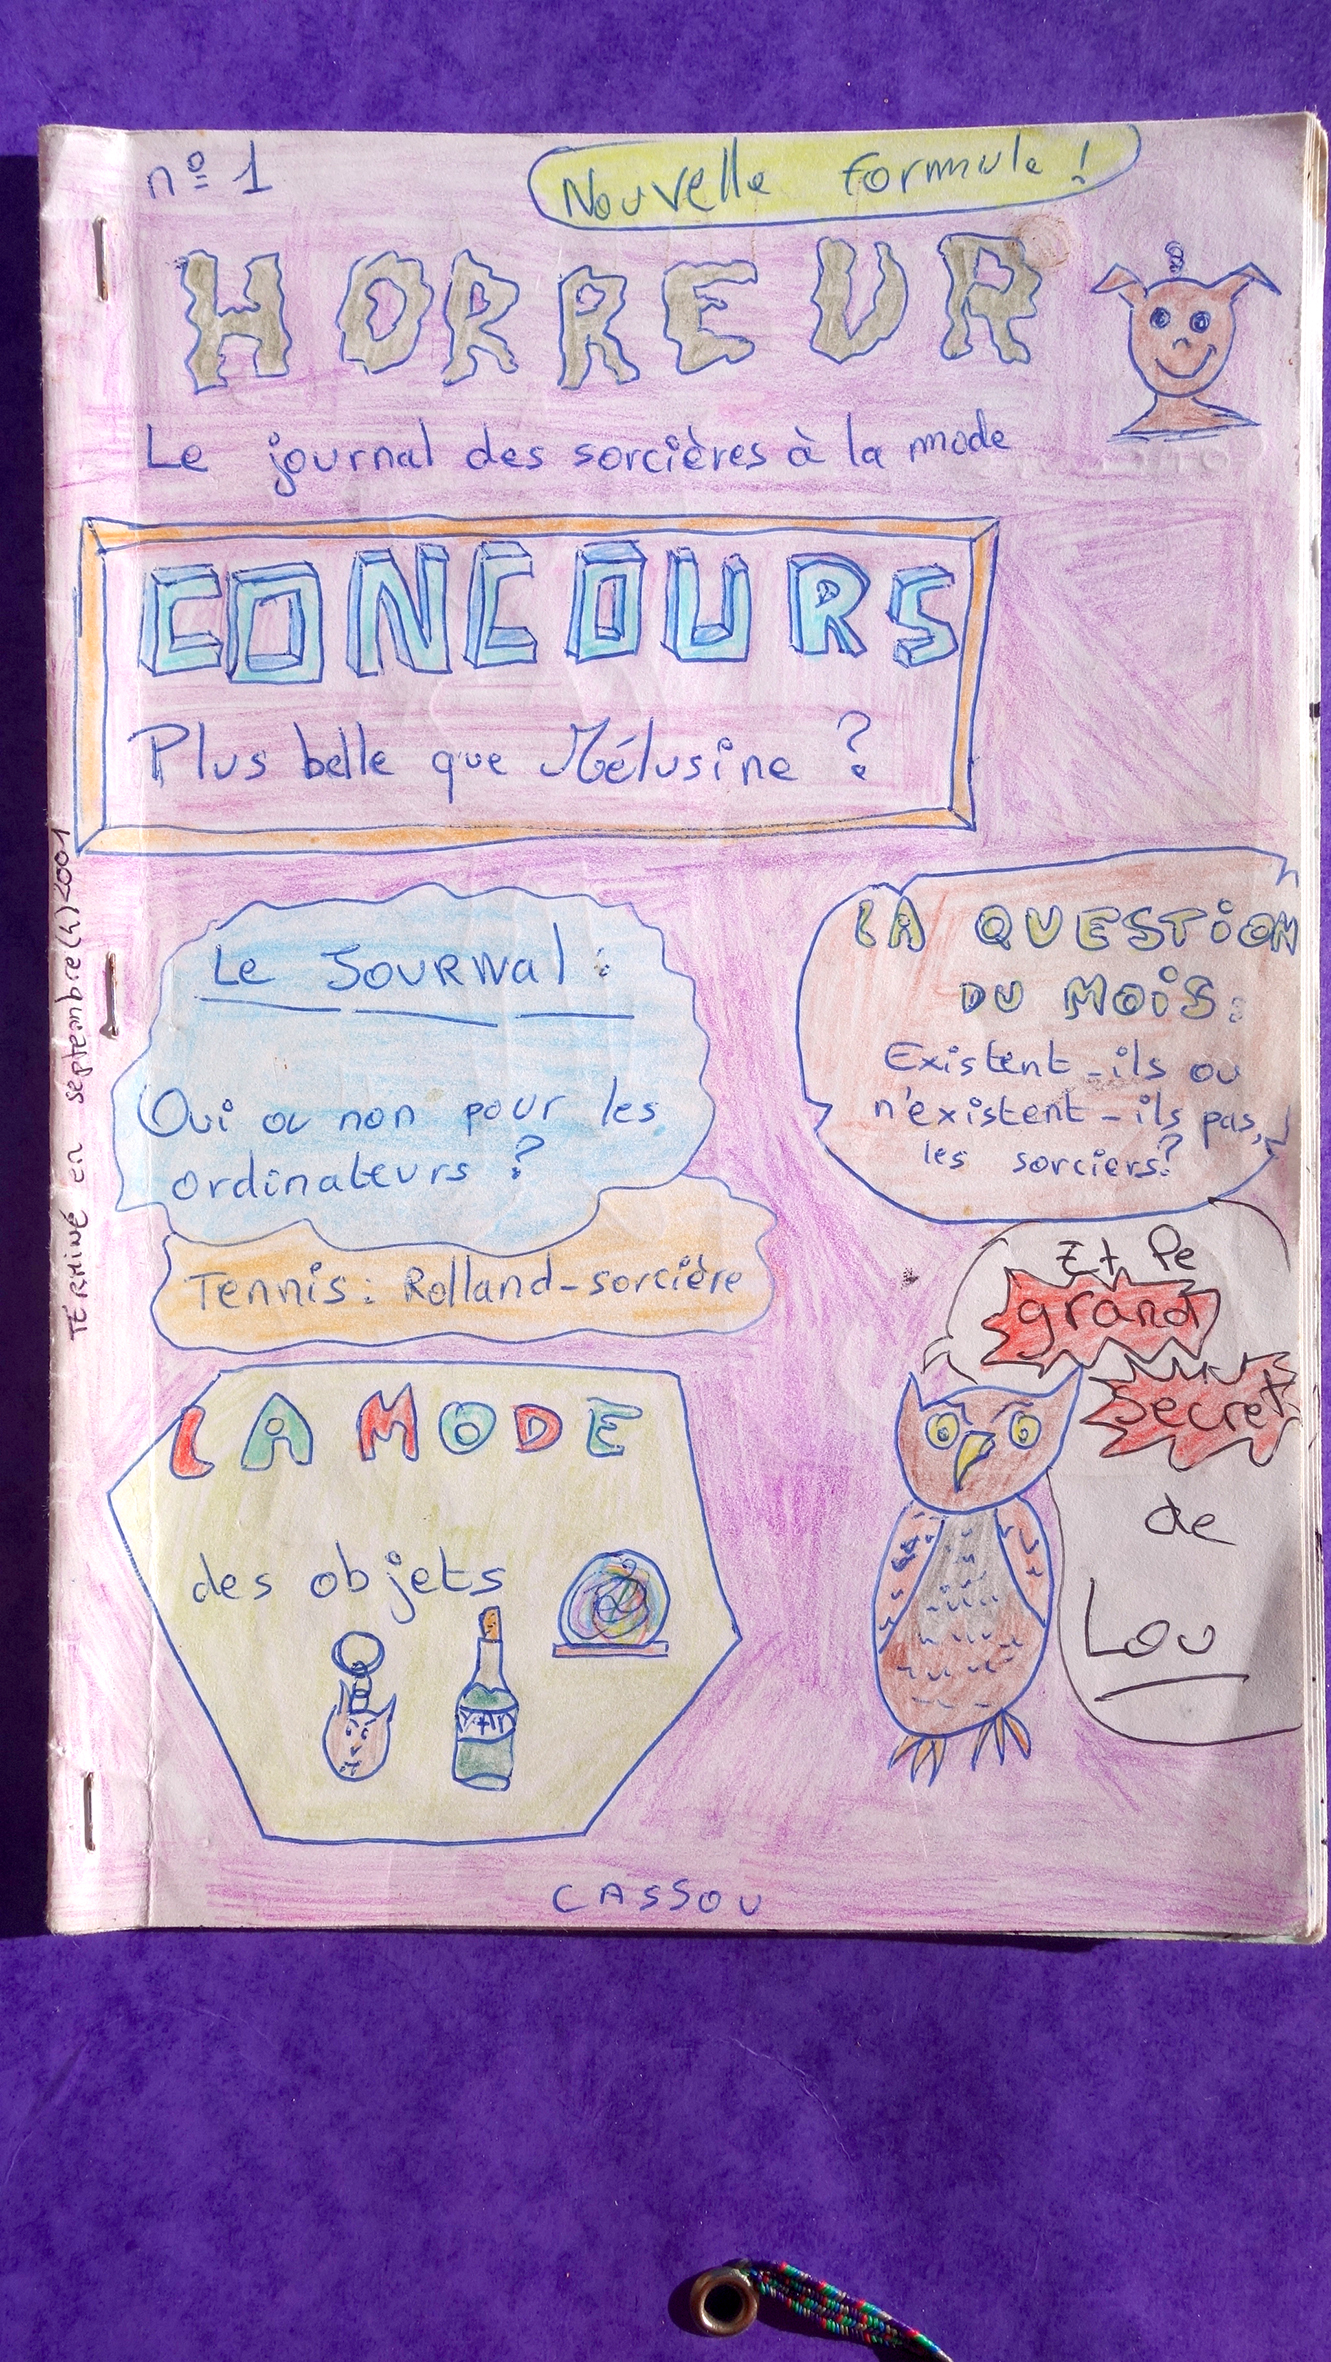 n° 1
Nouvelle formule !
HORREUR
Le journal des sorcières à la mode
CONCOURS
Plus belle que Mélusine ?
Le JOURNal :
Oui ou non pour les
ordinateurs ?
Tennis : Rolland-sorcière
LA QUESTION
DU MOIS :
Existent-ils ou
n'existent-ils pas,
les sorciers ?
Et le
grand
secret
de
Lou
LA MODE
des objets
CASSOU
TERMINÉ en septembre (4) 2001